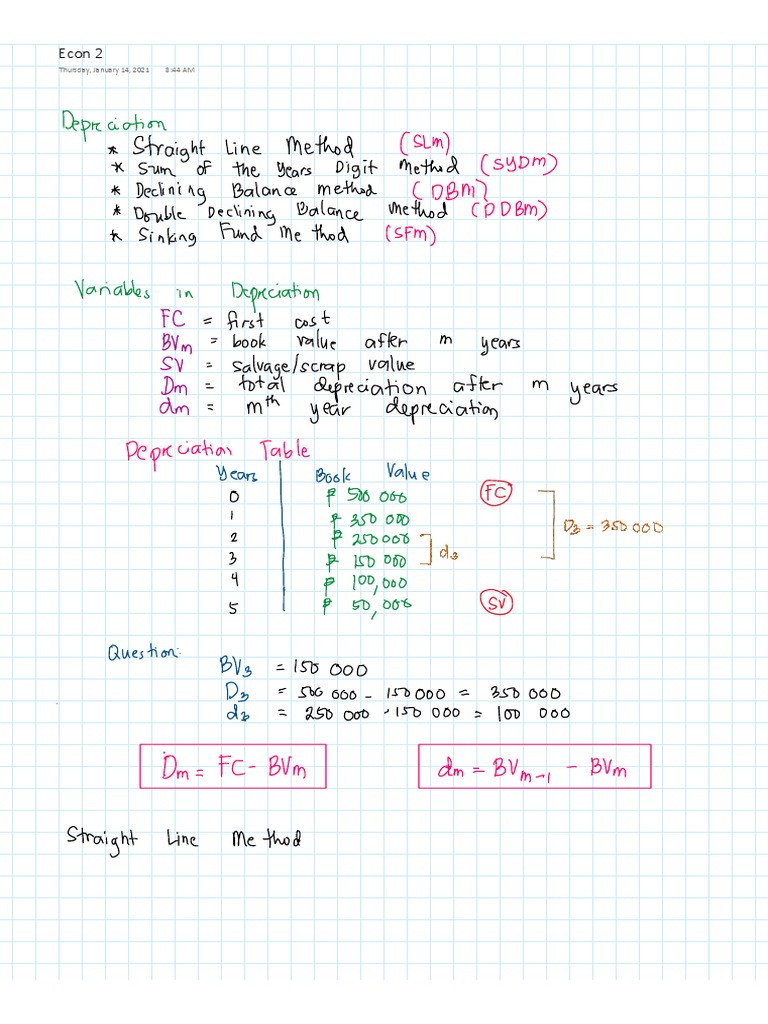 Econ 2
Thursday, January 14, 2021 8:44 AM
Depreciation
* Straight Line Method (SLm)
* Sum of the Years Digit Method (SYDm)
* Declining Balance method (DBm)
* Double Declining Balance Method (DDBm)
* Sinking Fund Method (SFm)
Variables in Depreciation
FC = first cost
BVm = book value after m years
SV = salvage/scrap value
Dm = total depreciation after m years
dm = mth year depreciation
Depreciation Table
Years Book Value
0 ₱ 500 000 FC
1 ₱ 350 000 D3 = 350 000
2 ₱ 250 000
3 ₱ 150 000 d3
4 ₱ 100,000
5 ₱ 50,000 SV
Question:
BV3 = 150 000
D3 = 500 000 - 150 000 = 350 000
d3 = 250 000 - 150 000 = 100 000
Dm = FC - BVm dm = BVm-1 - BVm
Straight Line Method